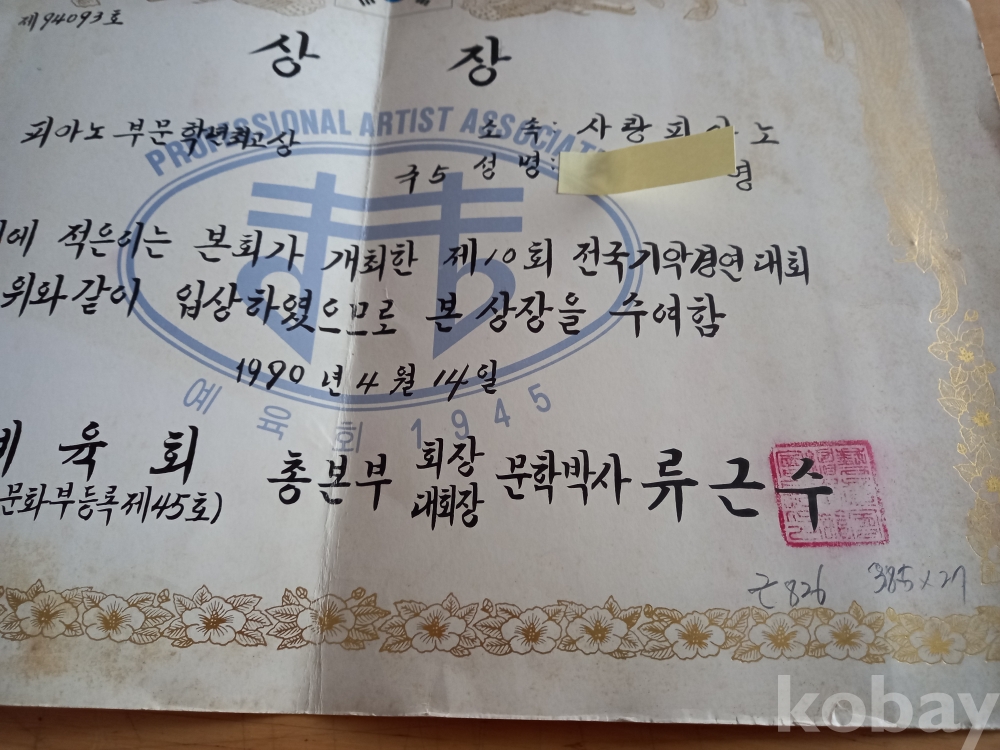 제94093호
상 장
피아노 부문 학년최고상
소 속: 사랑피아노
국5 성 명: 명
위에 적은이는 본회가 개최한 제10회 전국기악경연대회
위와같이 입상하였으므로 본 상장을 수여함
1990년 4월 14일
예 육 회 총본부 회장 대회장 문학박사 류근수
문화부등록제45호)
PROFESSIONAL ARTIST ASSOCIATI
예 육 회 1945
근826 385x27
kobay